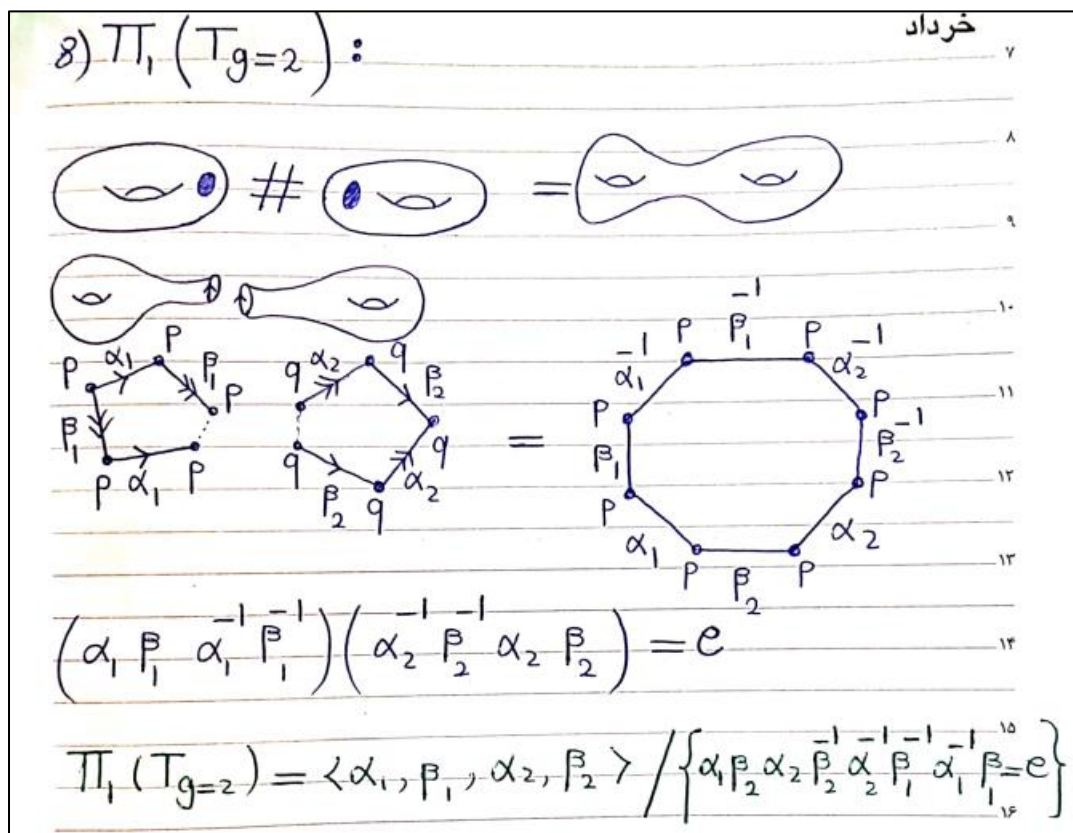 خرداد
8) Π₁ (T_g=2) :
۷
۸
# =
۹
۱۰
P α₁ P β₁ P β₁ P α₁ P
q α₂ q β₂ q q β₂ q α₂
=
P β₁⁻¹ P α₂⁻¹ P β₂⁻¹ P α₂ P β₂ P α₁ P β₁ P α₁⁻¹
۱۱
۱۲
۱۳
(α₁ β₁ α₁⁻¹ β₁⁻¹)(α₂⁻¹ β₂⁻¹ α₂ β₂) = e
۱۴
۱۵
Π₁ (T_g=2) = ⟨α₁, β₁, α₂, β₂⟩ / {α₁ β₂ α₂ β₂⁻¹ α₂⁻¹ β₁⁻¹ α₁⁻¹ β₁ = e}
۱۶